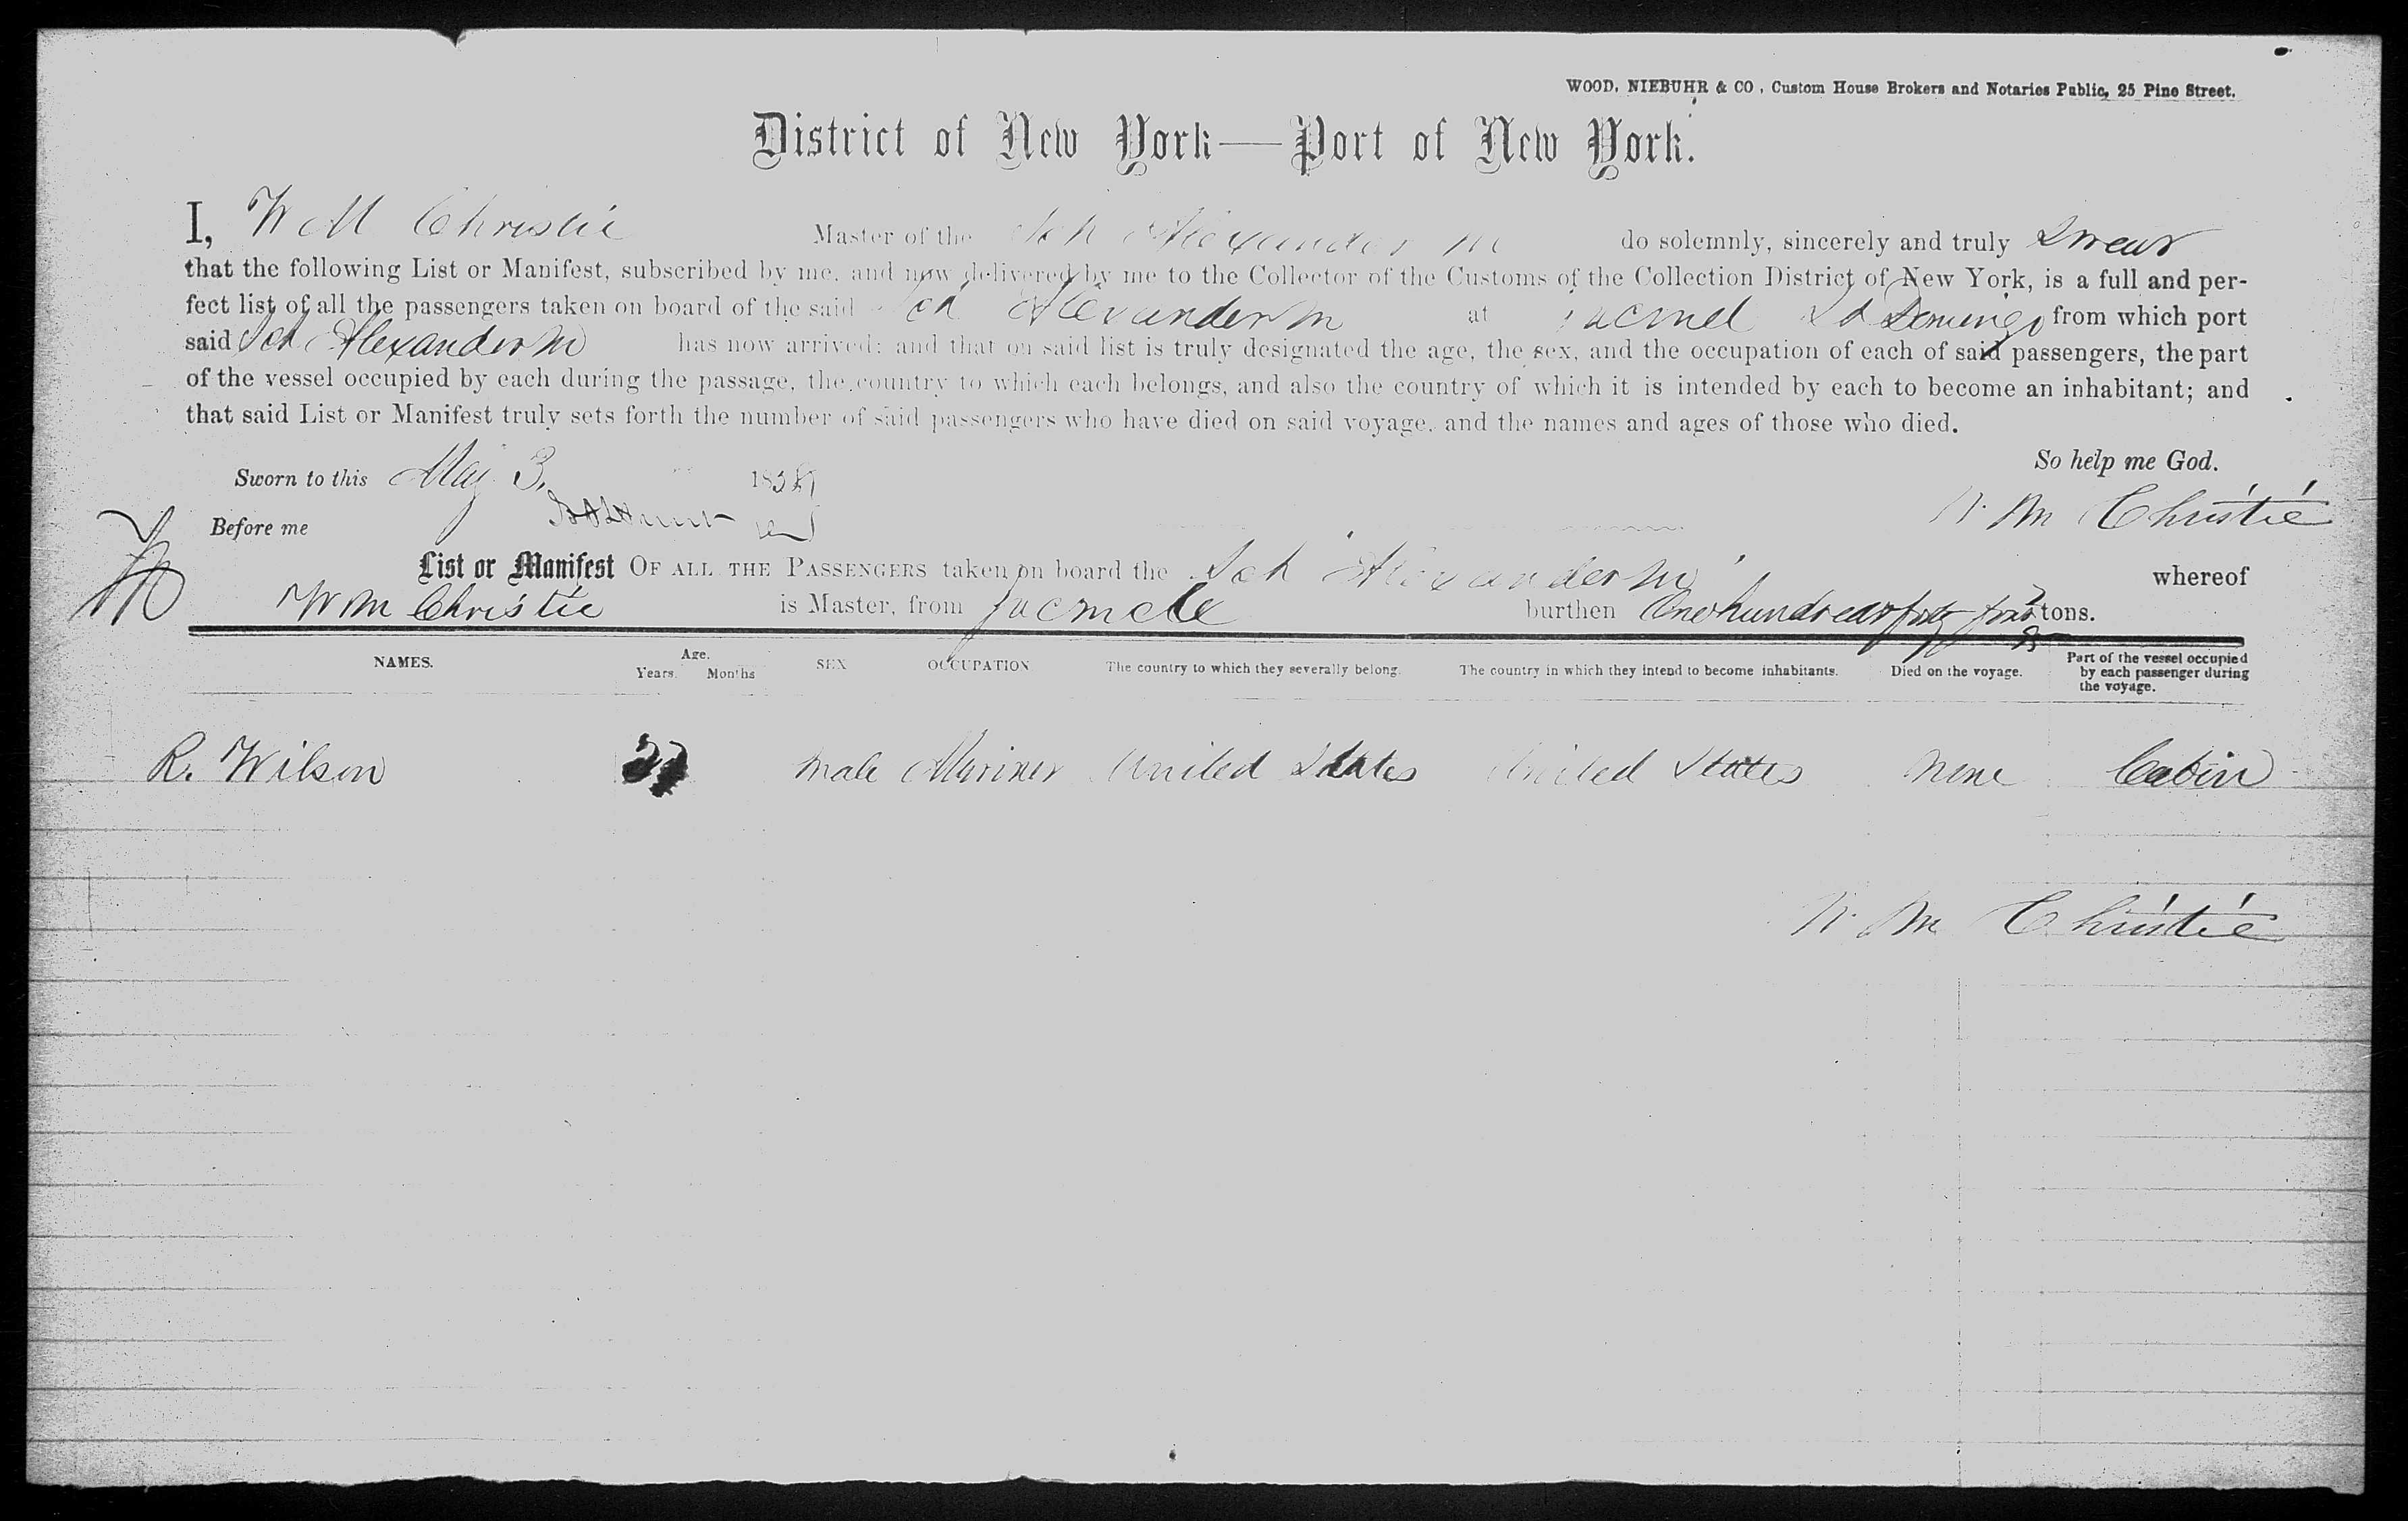 WOOD, NIEBUHR & CO, Custom House Brokers and Notaries Public, 25 Pine Street.
District of New York—Port of New York.
I, W M Christie Master of the Sch Alexander M do solemnly, sincerely and truly Swear
that the following List or Manifest, subscribed by me, and now delivered by me to the Collector of the Customs of the Collection District of New York, is a full and per-
fect list of all the passengers taken on board of the said Sch Alexander M at Jacmel St Domingo from which port
said Sch Alexander M has now arrived; and that on said list is truly designated the age, the sex, and the occupation of each of said passengers, the part
of the vessel occupied by each during the passage, the country to which each belongs, and also the country of which it is intended by each to become an inhabitant; and
that said List or Manifest truly sets forth the number of said passengers who have died on said voyage, and the names and ages of those who died.
So help me God.
Sworn to this May 3, 185
Before me
W. M Christie
List or Manifest OF ALL THE PASSENGERS taken on board the Sch Alexander M whereof
W M Christie is Master, from Jacmel burthen One hundred forty four tons.
NAMES. Age. Years. Months SEX OCCUPATION The country to which they severally belong. The country in which they intend to become inhabitants. Died on the voyage. Part of the vessel occupied by each passenger during the voyage.
R. Wilson male Mariner United States United States None Cabin
W. M Christie